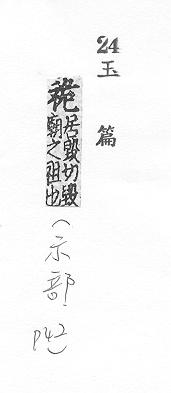 24
玉篇
祪居毀切毀
廟之祖也
(示部 p42)